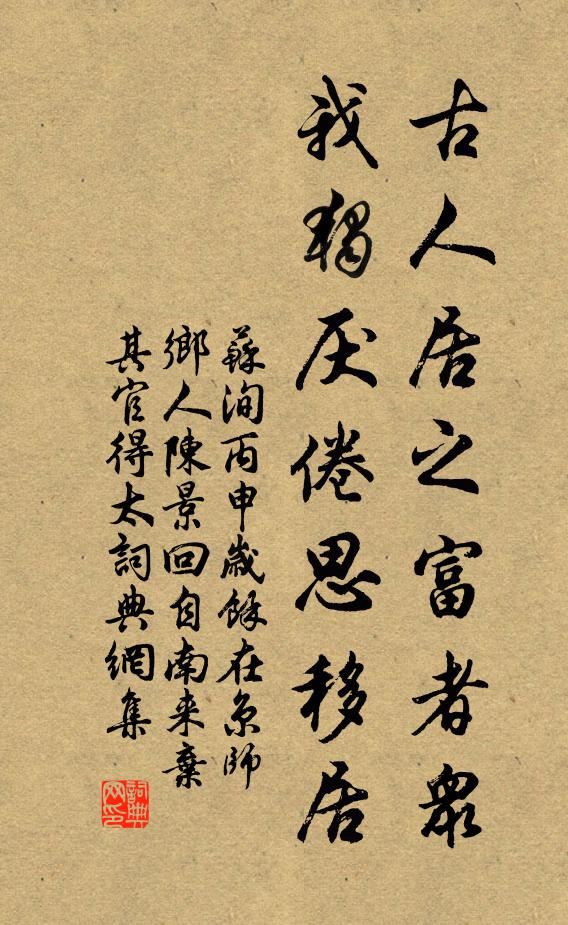 古人居之富者衆
我獨厌倦思移居
蘇洵丙申歲餘在京師
鄉人陳景回自南来棄
其官得太詞典網集
詞典
网印